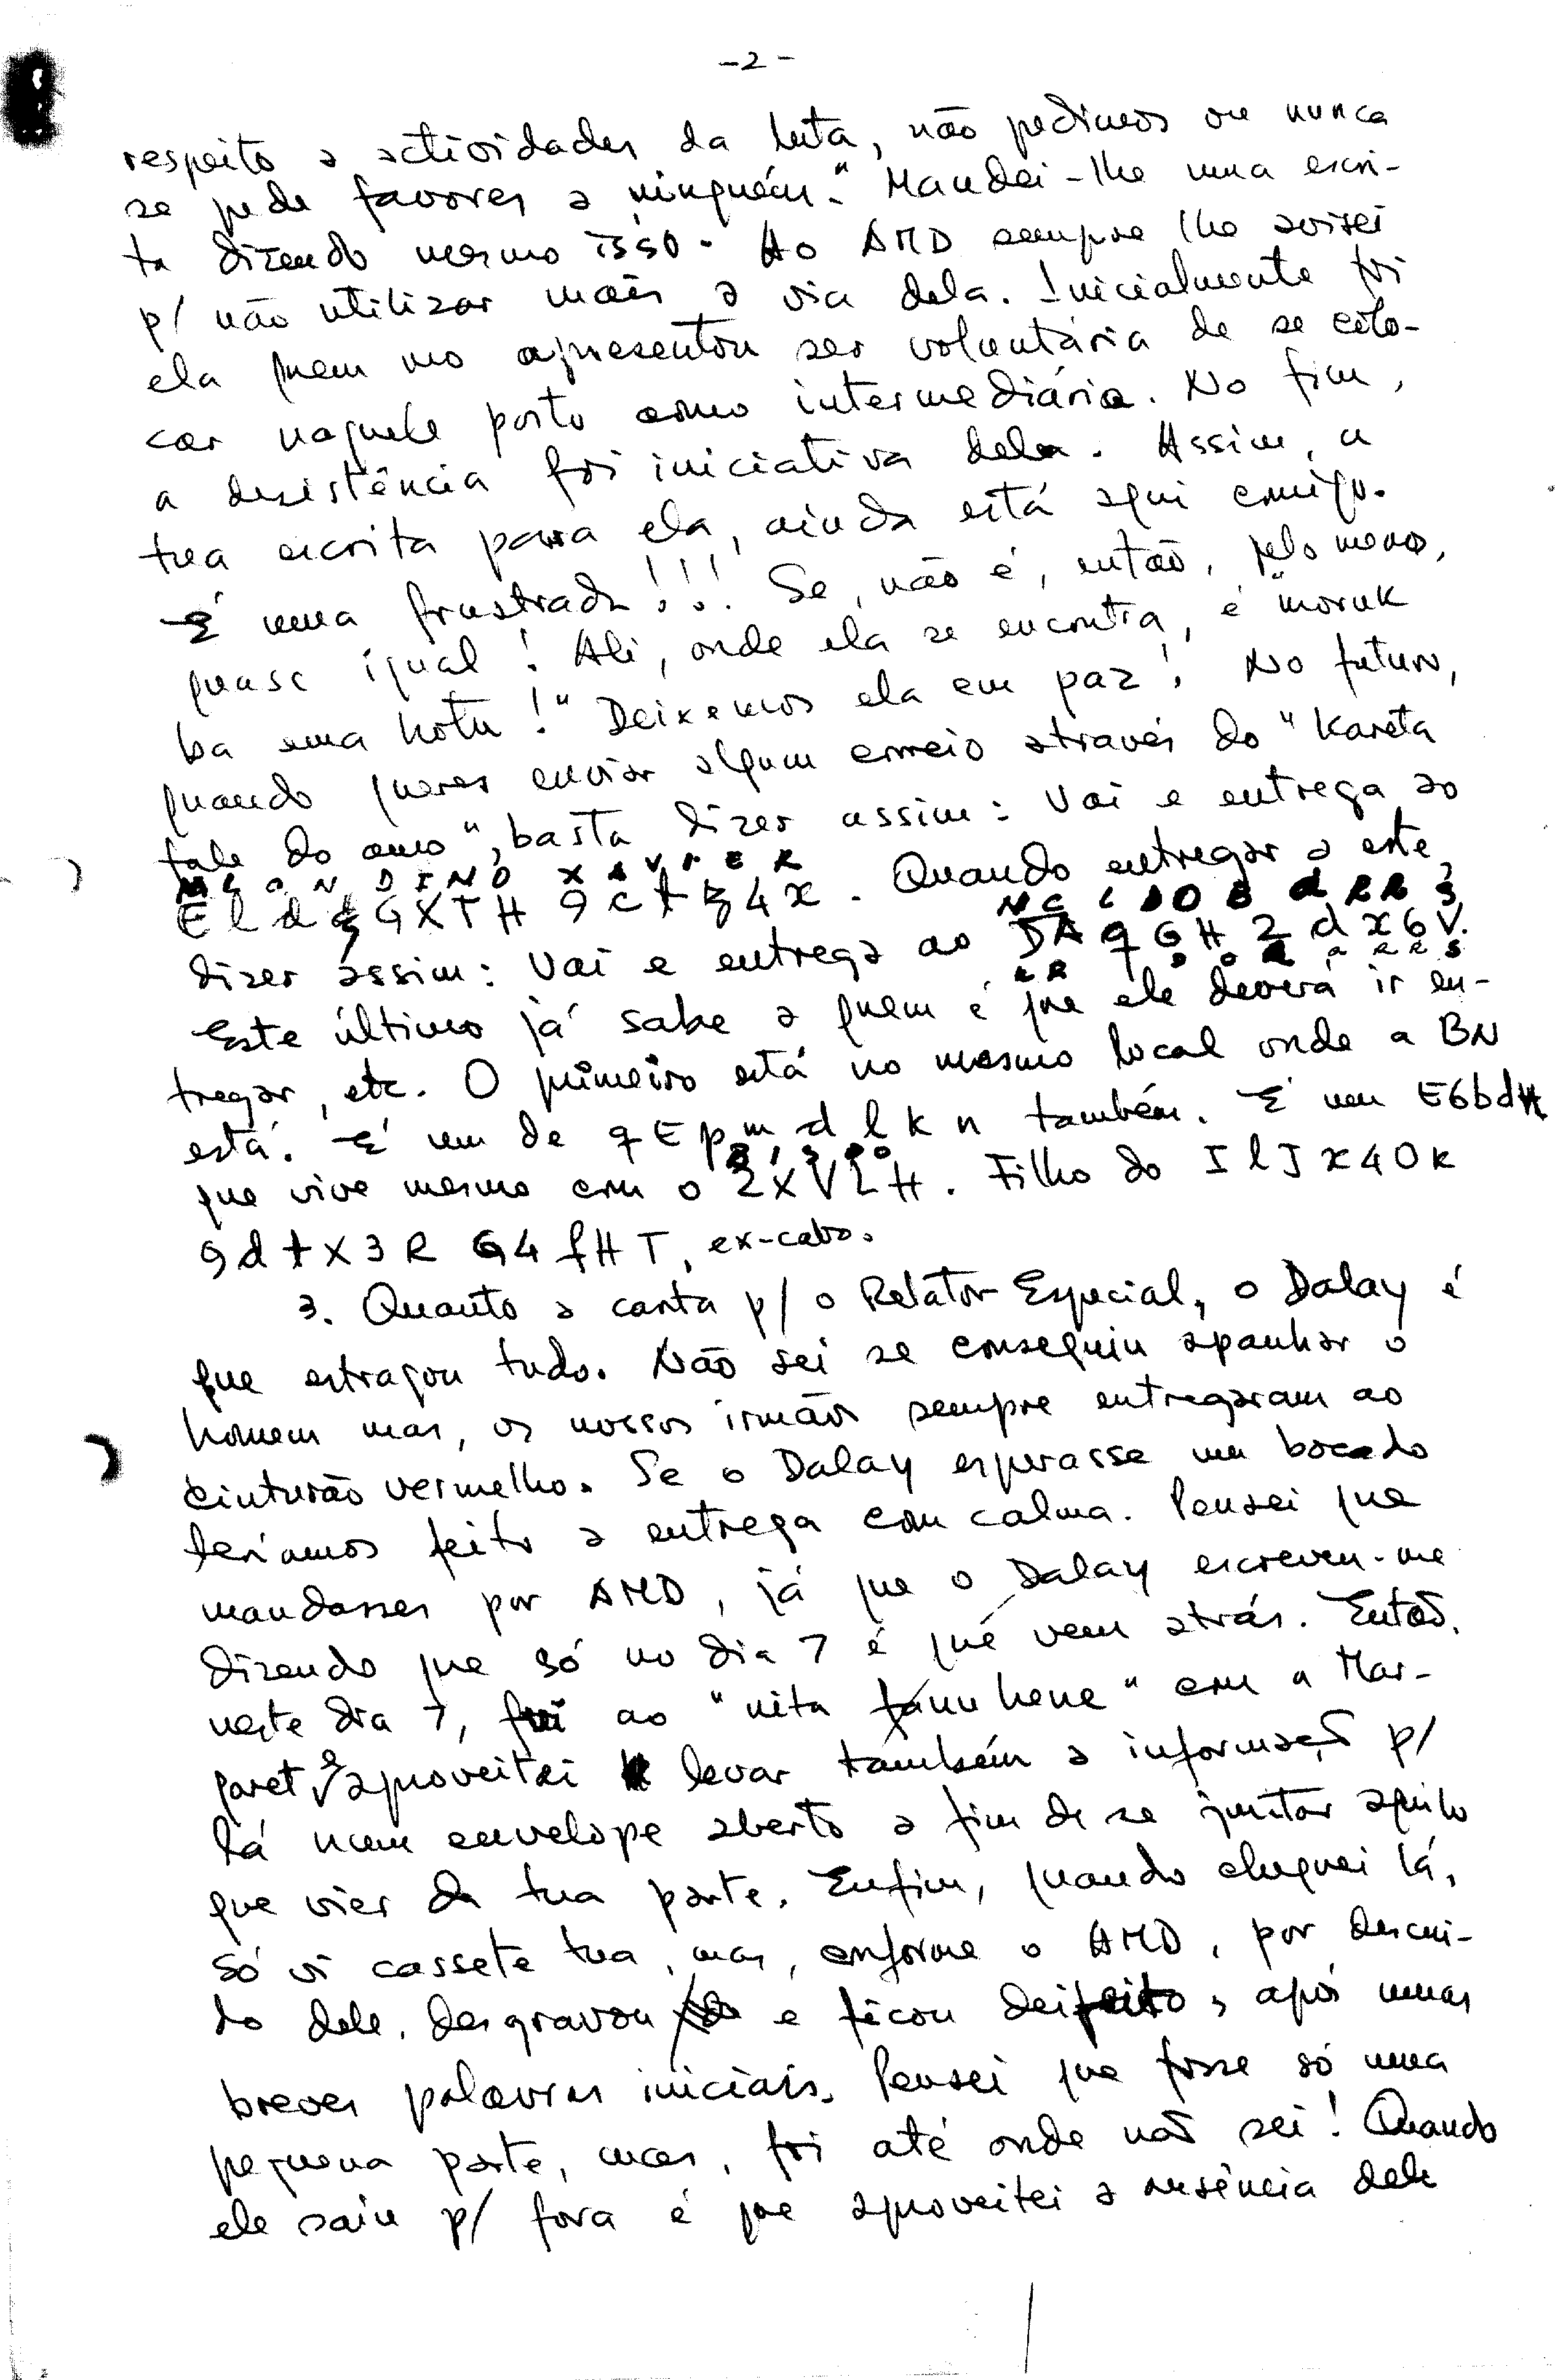 -2-
respeito a actividades da luta, não pedimos ou nunca
se pede favores a ninguém." Mandei-lhe uma escri-
ta dizendo mesmo isso. Ao AMD sempre lhe avisei
p/ não utilizar mais a via dela. Inicialmente foi
ela quem me apresentou ser voluntária de se colo-
car naquele posto como intermediária. No fim,
a desistência foi iniciativa dela. Assim, a
tua escrita para ela, ainda está aqui comigo.
É uma frustrada!!! Se não é, então, pelo menos,
quase igual! Ali, onde ela se encontra, é "moruk
ba uma hotu!" Deixemos ela em paz! No futuro,
quando queres enviar algum correio através do "Kareta
fale do amo", basta dizer assim: Vai e entrega ao
D I N O X A V I E R
E l d G X T H 9 c t 4 x. Quando entregar a este,
dizer assim: Vai e entrega ao D A q G H 2 d x 6 V.
Este último já sabe a quem é que ele deverá ir en-
tregar, etc. O primeiro está no mesmo local onde a BN
está. É um de q E p m d l k n também. É um E6bdH
que vive mesmo com o 2 X V L H. Filho do I l J x 4 O k
9 d t x 3 R G 4 f H T, ex-cabo.
3. Quanto a carta p/ o Relator Especial, o Dalay é
que estragou tudo. Não sei se conseguiu apanhar o
homem mas, os nossos irmãos sempre entregaram ao
cinturão vermelho. Se o Dalay esperasse um bocado
teríamos feito a entrega com calma. Pensei que
mandasses por AMD, já que o Dalay escreveu-me
dizendo que só no dia 7 é que vem atrás. Então,
neste dia 7, fui ao "nita hene" com a Mar-
garet e aproveitei levar também a informação p/
lá num envelope aberto a fim de se juntar aquilo
que vier da tua parte. Enfim, quando cheguei lá,
só vi cassete tua, mas, conforme o AMD, por descui-
do dele, desgravou e ficou deifeito, após umas
breves palavras iniciais. Pensei que fosse só uma
pequena parte, mas, foi até onde não sei! Quando
ele saiu p/ fora é que aproveitei a ausência dele